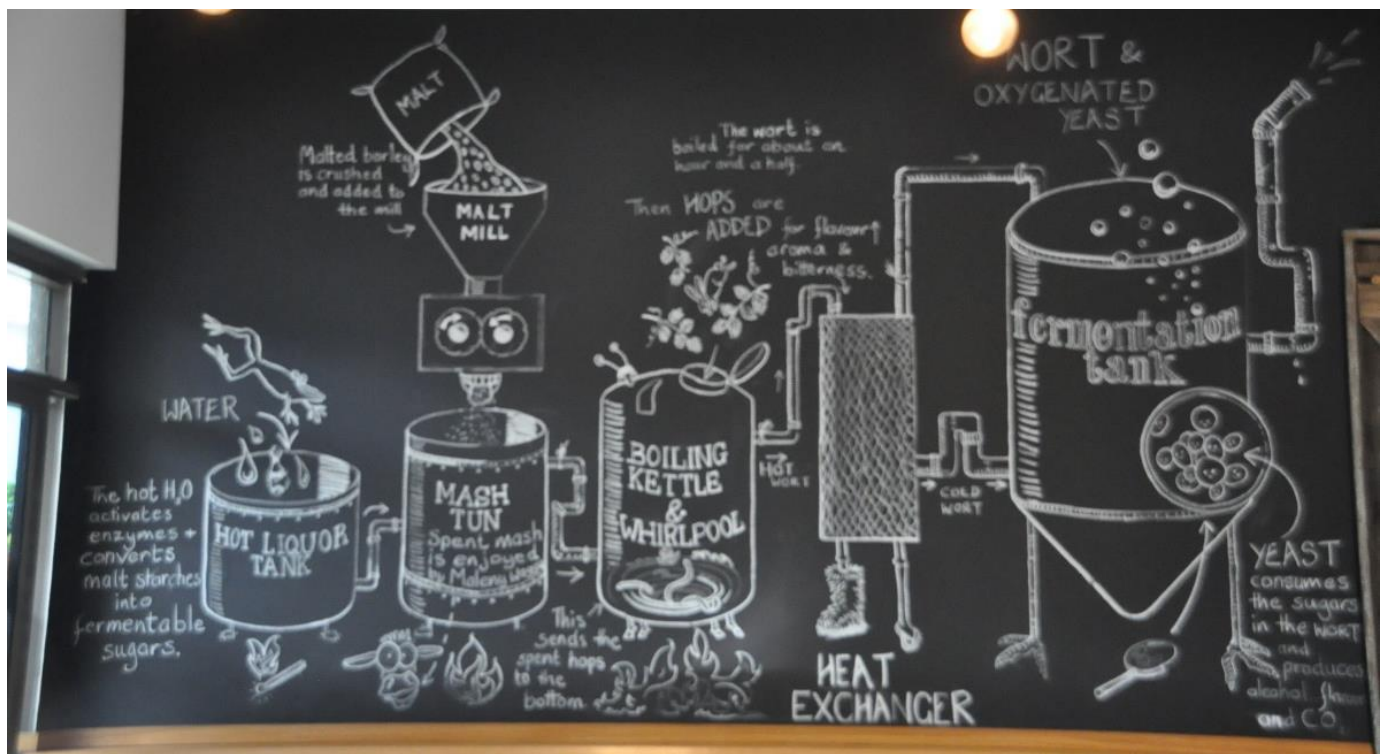 MALT
Malted barley
is crushed
and added to
the mill
MALT
MILL
WATER
The hot H₂O
activates
enzymes +
converts
malt starches
into
fermentable
sugars.
HOT LIQUOR
TANK
MASH
TUN
Spent mash
is enjoyed
by Maleny
The wort is
boiled for about an
hour and a half.
Then HOPS are
ADDED for flavour,
aroma &
bitterness.
BOILING
KETTLE
&
WHIRLPOOL
This
sends the
spent hops
to the
bottom
HOT
WORT
HEAT
EXCHANGER
COLD
WORT
WORT &
OXYGENATED
YEAST
fermentation
tank
YEAST
consumes
the sugars
in the WORT
and
produces
alcohol,
and CO₂